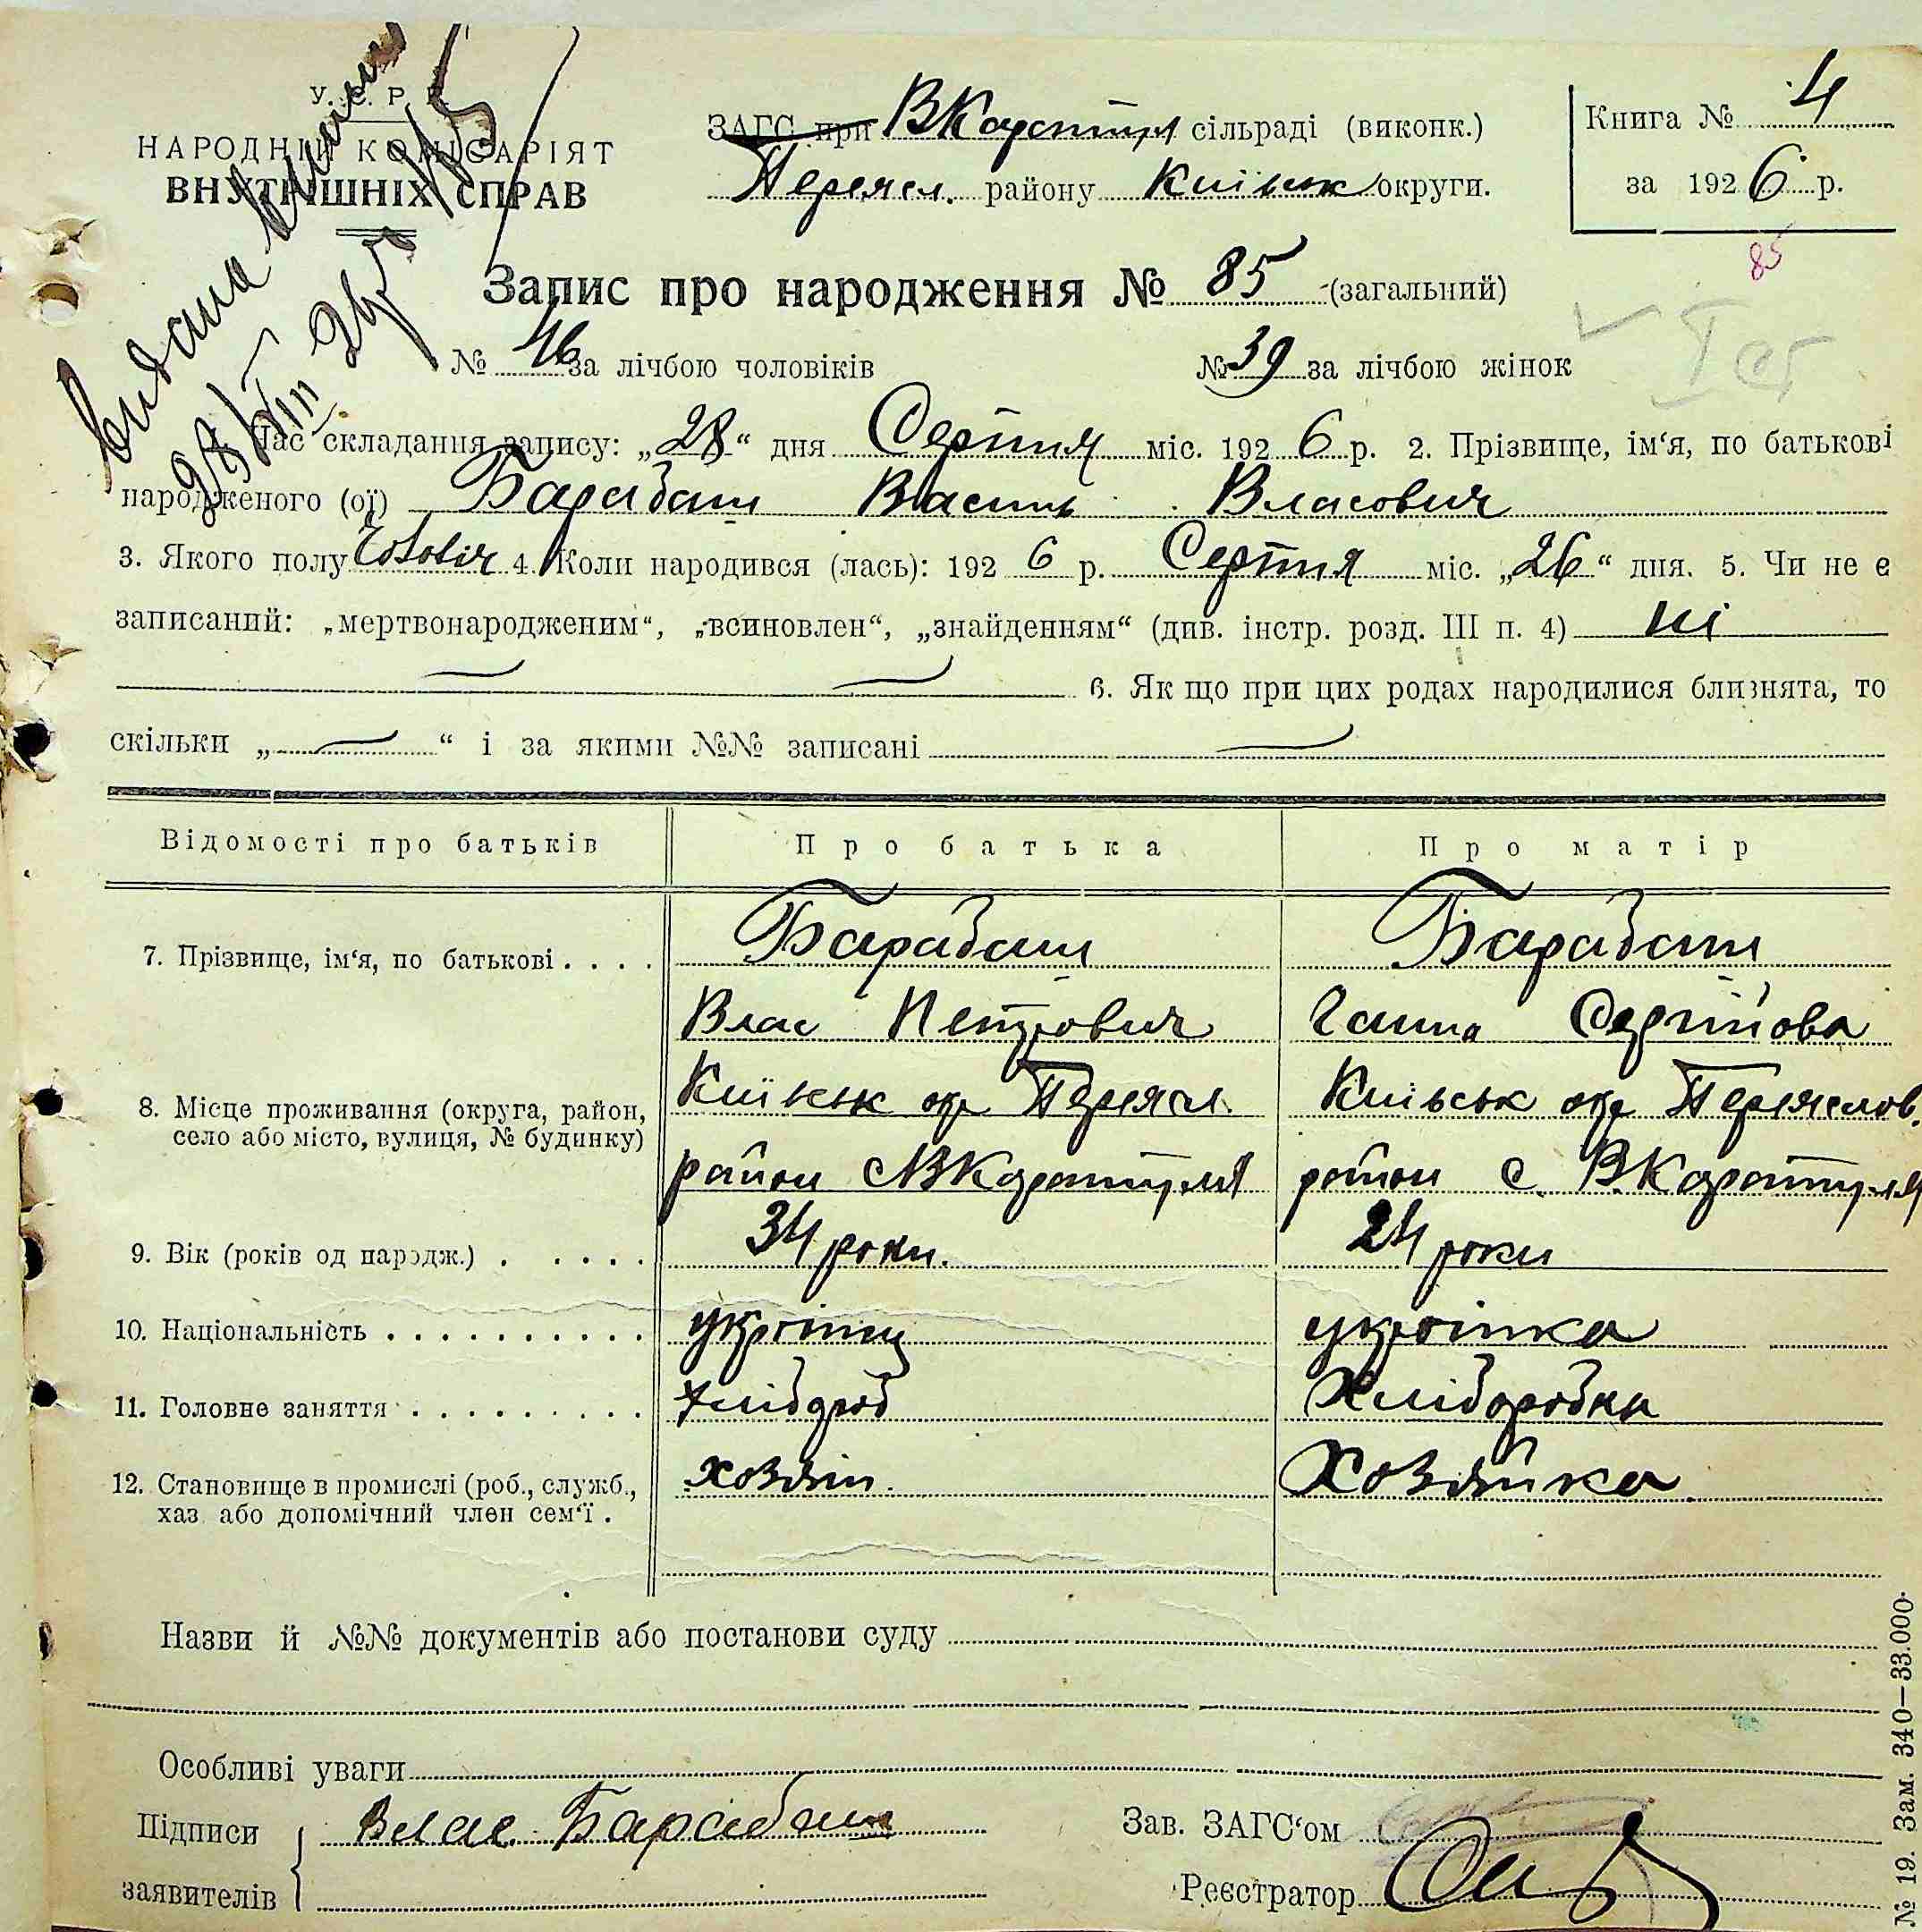 У. С. Р. Р.
НАРОДНІЙ КОМІСАРІЯТ
ВНУТРІШНІХ СПРАВ
видана
28/VIII 26 р.
ЗАГС при В Каратул сільраді (виконк.)
Переясл. району Київськ округи.
Книга № 4
за 1926 р.
85
Запис про народження № 85 (загальний)
№ 46 за лічбою чоловіків № 39 за лічбою жінок
Час складання запису: „28“ дня Серпня міс. 1926 р. 2. Прізвище, ім‘я, по батькові
народженого (ої) Барабаш Василь Власович
3. Якого полу Чоловіч 4. Коли народився (лась): 1926 р. Серпня міс. „26“ дня. 5. Чи не є
записаний: „мертвонародженим“, „всиновлен“, „знайденням“ (див. інстр. розд. III п. 4) ні
— — 6. Як що при цих родах народилися близнята, то
скільки „—“ і за якими №№ записані —
Відомості про батьків Про батька Про матір
7. Прізвище, ім‘я, по батькові . . . . Барабаш Барабаш
Влас Петрович Ганна Сергійова
8. Місце проживання (округа, район, Київськ окр Переясл. Київськ окр Переяслов.
село або місто, вулиця, № будинку)
район с В Каратуля район с. В. Каратуля
9. Вік (років од народж.) . . . . . 34 роки. 24 роки
10. Національність . . . . . . . . . . . українц українка
11. Головне заняття . . . . . . . . . . хлібороб Хлібаробка
12. Становище в промислі (роб., служб., хозяін. Хозяйка
хаз або допомічний член сем‘ї .
Назви й №№ документів або постанови суду
Особливі уваги
Підписи Влас Барабаш Зав. ЗАГС‘ом
заявителів Реєстратор
№ 19. Зам. 340—33.000.